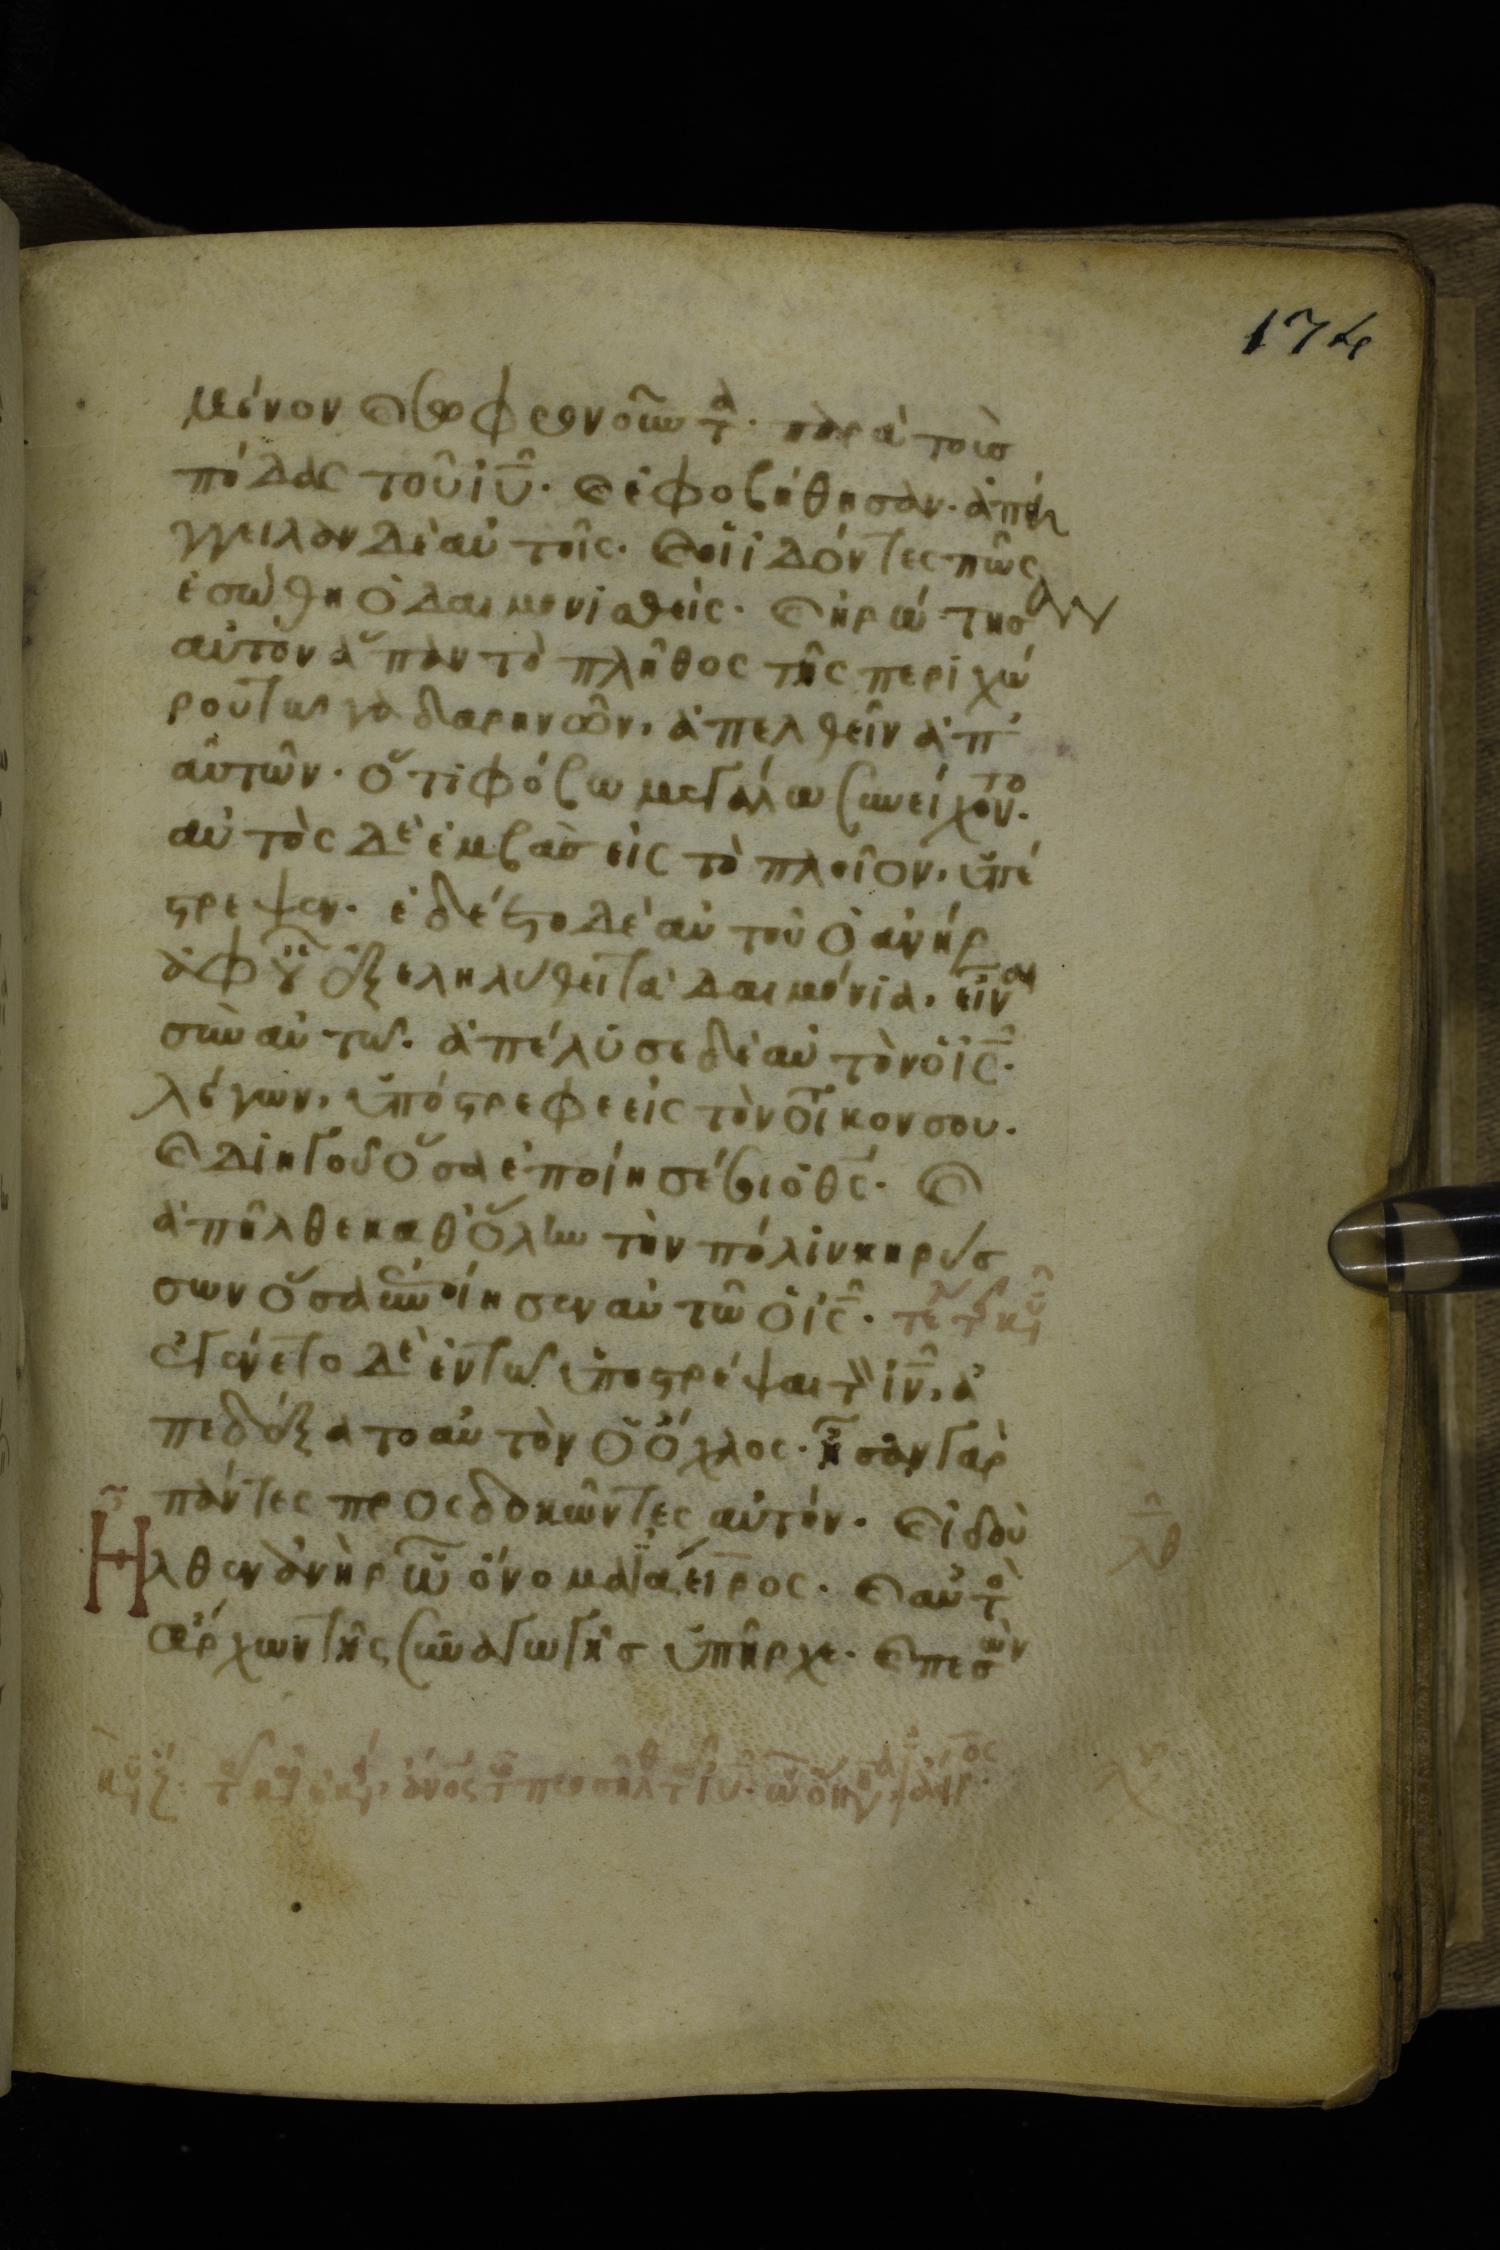 174
μένον καὶ σωφρονοῦντα· παρὰ τοὺσ
πόδας τοῦ ἰῦ· καὶ ἐφοβήθησαν· ἀπήγ
γειλαν δὲ αὐτοῖς· καὶ οἱ ἰδόντες πῶς
ἐσώθη ὁ δαιμονισθεὶς· καὶ ἠρώτησαν
αὐτὸν ἅπαν τὸ πλῆθος τῆς περιχώ
ρου τῶν γαδαρηνῶν, ἀπελθεῖν ἀπ'
αὐτῶν· ὅτι φόβω μεγάλω συνείχοντο·
αὐτὸς δὲ ἐμβὰσ εἰς τὸ πλοῖον, ὑπέ
στρεψεν· ἐδέετο δὲ αὐτοῦ ὁ ἀνὴρ
ἀφ' οὗ ἐξεληλύθει τὰ δαιμόνια, εἶναι
σὺν αὐτῶ· ἀπέλυσε δὲ αὐτὸν ὁ ἰς·
λέγων, ὑπόστρεφε εἰς τὸν οἶκον σου·
καὶ διηγοῦ ὅσα ἐποίησέ σοι ὁ θς· καὶ
ἀπῆλθε καθ' ὅλην τὴν πόλιν κηρύσ
σων ὅσα ἐποίησεν αὐτῶ ὁ ἰς·
ἐγένετο δὲ ἐν τῶ ὑποστρέψαι τὸν ἰν, ἀ
πεδέξατο αὐτὸν ὁ ὄχλος· ἦσαν γὰρ
πάντες προσδοκῶντες αὐτόν· καὶ ἰδοὺ
Ηλθεν ἀνὴρ ὧ ὄνομα ϊάειρος· καὶ αὐτὸ
ἄρχων τῆς συναγωγῆσ ὑπῆρχε· καὶ πεσὼν
λθ